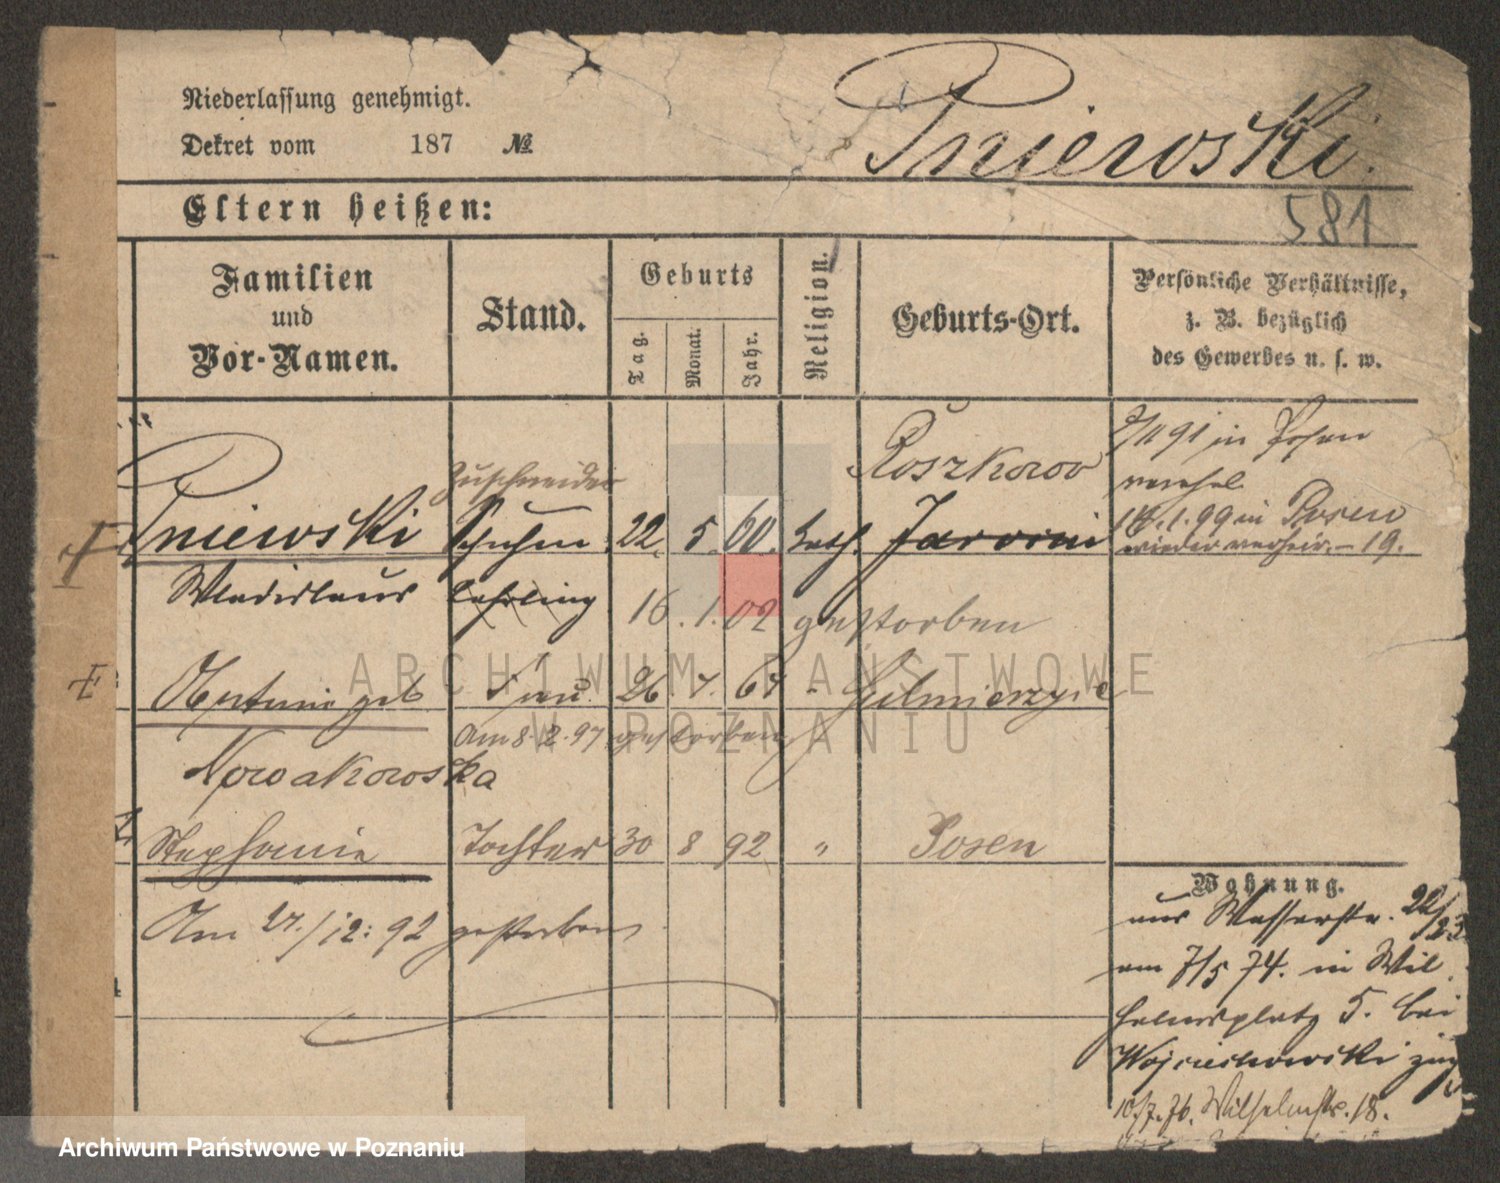 Niederlassung genehmigt.
Dekret vom 187 №
Pniewski.
581
Eltern heißen:
Familien und Vor-Namen.
Stand.
Geburts
Tag.
Monat.
Jahr.
Religion.
Geburts-Ort.
Persönliche Verhältnisse,
z. B. bezüglich
des Gewerbes u. s. w.
Zuschneider
Roszkowo
9/11 91 in Posen
verehel.
Pniewski Schuhm 22. 5. 60. kath. Jarocin
1.99 in Posen
wieder verheir. - 19.
Wladislaus lehrling 16. 1. 02 gestorben
Antonie geb Frau 26. 7. 67 " 
Am 8. 2. 97 gestorben
Nowakowska
Stephanie Tochter 30 8 92 " Posen
Am 27./12. 92 gestorben
Wohnung.
aus Wasserstr. 22/23
am 7/5 74. in Wil
helmsplatz 5. bei
Wojciechowski zug
10/7. 76. Wilhelmstr. 18.
ARCHIWUM PAŃSTWOWE
W POZNANIU
Archiwum Państwowe w Poznaniu